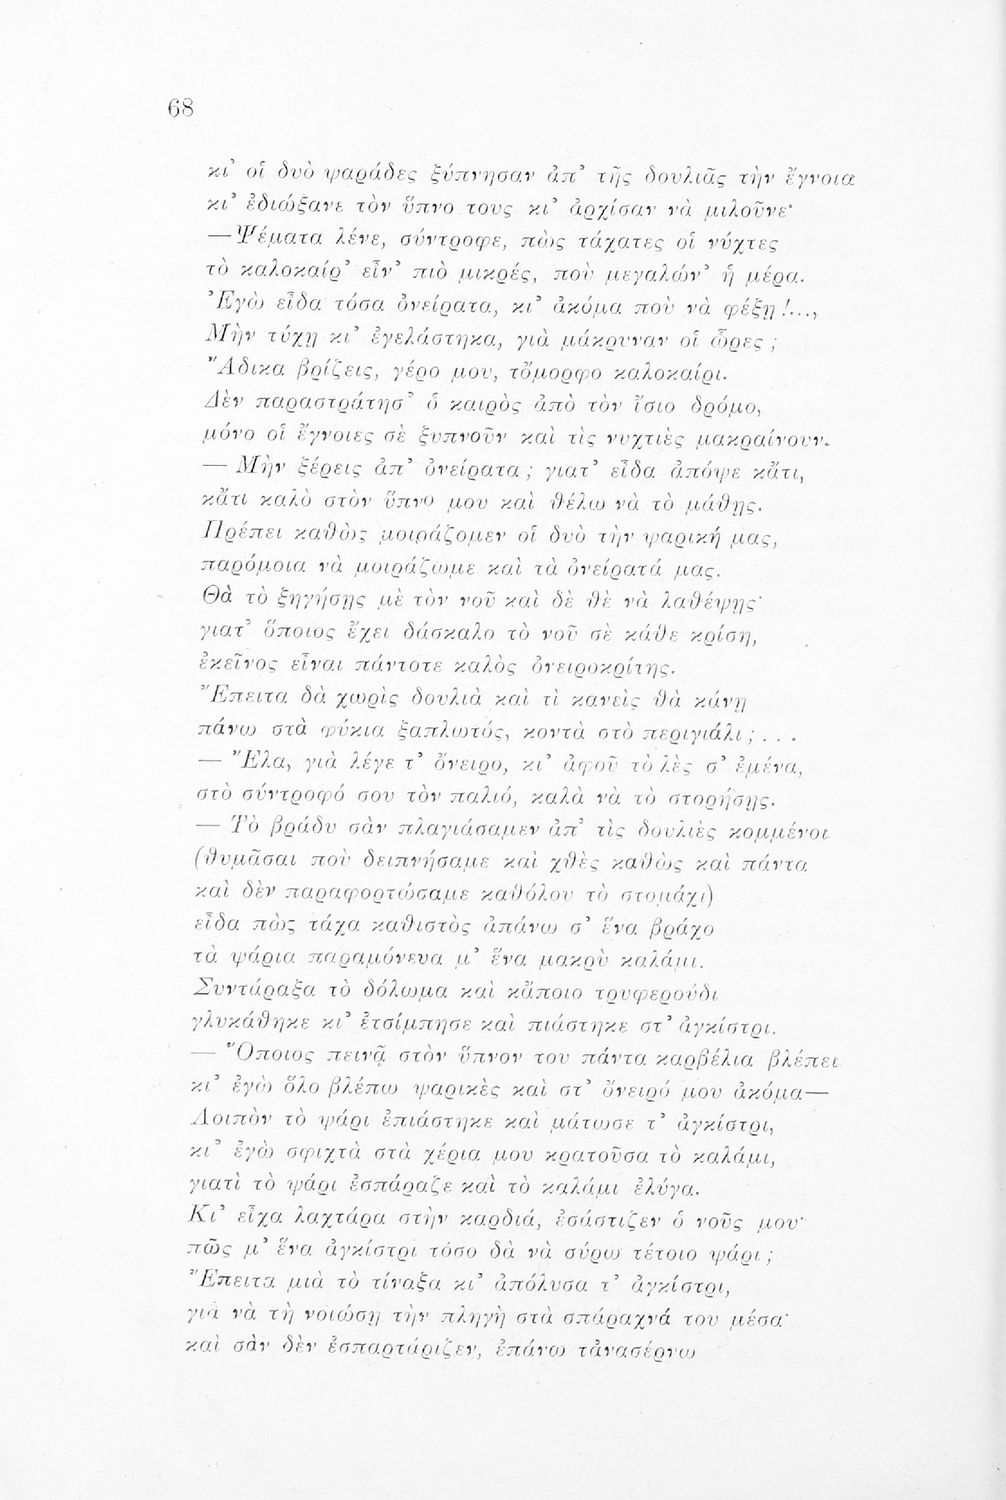 68
κι᾿ οἱ δυὸ ψαράδες ξύπνησαν ἀπ᾿ τῆς δουλιᾶς τὴν ἔγνοια
κι᾿ ἐδιώξανε τὸν ὕπνο τους κι᾿ ἀρχίσαν νὰ μιλοῦνε·
—Ψέματα λένε, σύντροφε, πὼς τάχατες οἱ νύχτες
τὸ καλοκαίρ᾿ εἶν᾿ πιὸ μικρές, ποὺ μεγαλών᾿ ἡ μέρα.
Ἐγὼ εἶδα τόσα ὀνείρατα, κι᾿ ἀκόμα ποὺ νὰ φέξῃ !...,
Μὴν τύχῃ κι᾿ ἐγελάστηκα, γιὰ μάκρυναν οἱ ὧρες ;
Ἄδικα βρίζεις, γέρο μου, τὄμορφο καλοκαίρι.
Δὲν παραστράτησ᾿ ὁ καιρὸς ἀπὸ τὸν ἴσιο δρόμο,
μόνο οἱ ἔγνοιες σὲ ξυπνοῦν καὶ τὶς νυχτιὲς μακραίνουν.
— Μὴν ξέρεις ἀπ᾿ ὀνείρατα ; γιατ᾿ εἶδα ἀπόψε κἄτι,
κἄτι καλὸ στὸν ὕπνο μου καὶ θέλω νὰ τὸ μάθῃς.
Πρέπει καθὼς μοιράζομεν οἱ δυὸ τὴν ψαρική μας,
παρόμοια νὰ μοιράζωμε καὶ τὰ ὀνείρατά μας.
Θὰ τὸ ξηγήσῃς μὲ τὸν νοῦ καὶ δὲ θὲ νὰ λαθέψῃς·
γιατ᾿ ὅποιος ἔχει δάσκαλο τὸ νοῦ σὲ κάθε κρίση,
ἐκεῖνος εἶναι πάντοτε καλὸς ὀνειροκρίτης.
Ἔπειτα δὰ χωρὶς δουλιὰ καὶ τὶ κανεὶς θὰ κάνῃ
πάνω στὰ φύκια ξαπλωτός, κοντὰ στὸ περιγιάλι ; . . .
— Ἔλα, γιὰ λέγε τ᾿ ὄνειρο, κι᾿ ἀφοῦ τὸ λὲς σ᾿ ἐμένα,
στὸ σύντροφό σου τὸν παλιό, καλὰ νὰ τὸ στορήσῃς.
— Τὸ βράδυ σὰν πλαγιάσαμεν ἀπ᾿ τὶς δουλιὲς κομμένοι
(θυμᾶσαι ποὺ δειπνήσαμε καὶ χθὲς καθὼς καὶ πάντα
καὶ δὲν παραφορτώσαμε καθόλου τὸ στομάχι)
εἶδα πὼς τάχα καθιστὸς ἀπάνω σ᾿ ἕνα βράχο
τὰ ψάρια παραμόνευα μ᾿ ἕνα μακρὺ καλάμι.
Συντάραξα τὸ δόλωμα καὶ κἄποιο τρυφερούδι
γλυκάθηκε κι᾿ ἐτσίμπησε καὶ πιάστηκε στ᾿ ἀγκίστρι.
— Ὅποιος πεινᾷ στὸν ὕπνον του πάντα καρβέλια βλέπει
κι᾿ ἐγὼ ὅλο βλέπω ψαρικὲς καὶ στ᾿ ὄνειρό μου ἀκόμα—
Λοιπὸν τὸ ψάρι ἐπιάστηκε καὶ μάτωσε τ᾿ ἀγκίστρι,
κι᾿ ἐγὼ σφιχτὰ στὰ χέρια μου κρατοῦσα τὸ καλάμι,
γιατὶ τὸ ψάρι ἐσπάραζε καὶ τὸ καλάμι ἐλύγα.
Κι᾿ εἶχα λαχτάρα στὴν καρδιά, ἐσάστιζεν ὁ νοῦς μου·
πῶς μ᾿ ἕνα ἀγκίστρι τόσο δὰ νὰ σύρω τέτοιο ψάρι ;
Ἔπειτα μιὰ τὸ τίναξα κι᾿ ἀπόλυσα τ᾿ ἀγκίστρι,
γιὰ νὰ τὴ νοιώσῃ τὴν πληγὴ στὰ σπάραχνά του μέσα·
καὶ σὰν δὲν ἐσπαρτάριζεν, ἐπάνω τἀνασέρνω